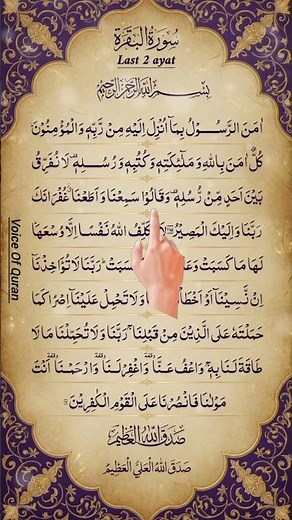 سُوْرَةُ الْبَقَرَةِ
Last 2 ayat
بِسْمِ اللّٰهِ الرَّحْمٰنِ الرَّحِيْمِ
اٰمَنَ الرَّسُوْلُ بِمَاۤ اُنْزِلَ اِلَيْهِ مِنْ رَّبِّهٖ وَالْمُؤْمِنُوْنَ
كُلٌّ اٰمَنَ بِاللّٰهِ وَمَلٰٓئِكَتِهٖ وَكُتُبِهٖ وَرُسُلِهٖ لَا نُفَرِّقُ
بَيْنَ اَحَدٍ مِّنْ رُّسُلِهٖ وَقَالُوْا سَمِعْنَا وَاَطَعْنَا غُفْرَانَكَ
رَبَّنَا وَاِلَيْكَ الْمَصِيْرُ يُكَلِّفُ اللّٰهُ نَفْسًا اِلَّا وُسْعَهَا
لَهَا مَا كَسَبَتْ وَعَلَيْهَا رَبَّنَا لَا تُؤَاخِذْنَاۤ
اِنْ نَّسِيْنَاۤ اَوْ اَخْطَاْنَا وَلَا تَحْمِلْ عَلَيْنَاۤ اِصْرًا كَمَا
حَمَلْتَهٗ عَلَى الَّذِيْنَ مِنْ قَبْلِنَا رَبَّنَا وَلَا تُحَمِّلْنَا مَا لَا
طَاقَةَ لَنَا بِهٖ وَاعْفُ عَنَّا وَاغْفِرْ لَنَا وَارْحَمْنَا اَنْتَ
مَوْلٰىنَا فَانْصُرْنَا عَلَى الْقَوْمِ الْكٰفِرِيْنَ
صَدَقَ اللّٰهُ الْعَظِيْمُ
صَدَقَ اللّٰهُ الْعَلِيُّ الْعَظِيْمُ
Voice Of Quran